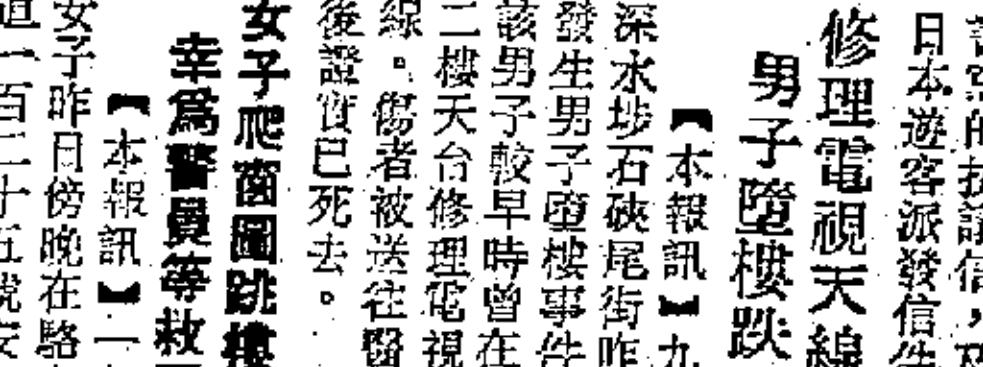 的抗議信，
日本遊客派發信件
修理電視天線
男子墮樓跌
【本報訊】九
深水埗石硤尾街昨
發生男子墮樓事件
該男子較早時曾在
二樓天台修理電視
線。傷者被送往醫
後證實已死去。
女子爬窗圖跳樓
幸爲警員等救
【本報訊】一
女子昨日傍晚在駱
道一百二十五號安